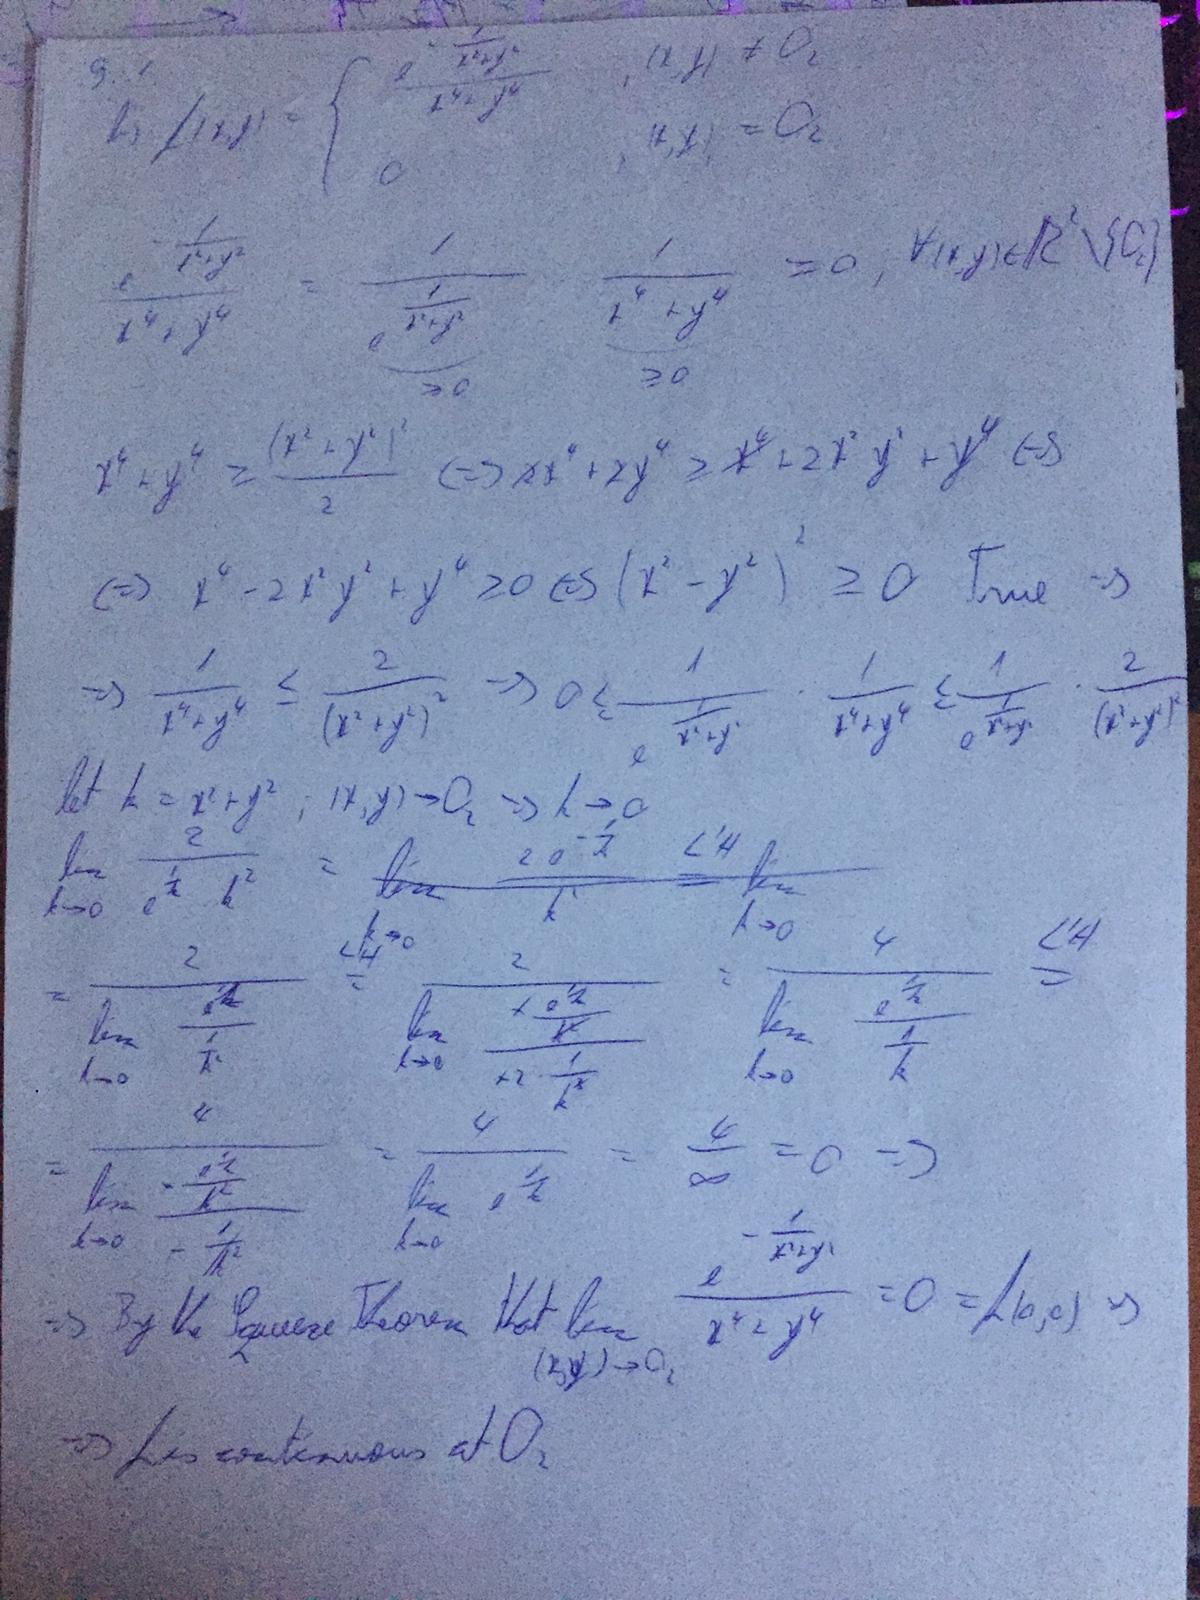 9. 1
b) f(x,y) = { e^{-\frac{1}{x²+y²}} / (x⁴+y⁴) , (x,y) ≠ O₂
0 , (x,y) = O₂
e^{-\frac{1}{x²+y²}} / (x⁴+y⁴) = 1 / e^{\frac{1}{x²+y²}} (≥0) · 1 / (x⁴+y⁴) (≥0) ≥ 0, ∀(x,y)∈ℝ²\{O₂}
x⁴+y⁴ ≥ (x²+y²)²/2 (=> 2x⁴+2y⁴ ≥ x⁴+2x²y²+y⁴ (=>
(=> x⁴-2x²y²+y⁴ ≥0 (=> (x²-y²)² ≥ 0 True =>
=> 1/(x⁴+y⁴) ≤ 2/(x²+y²)² => 0 ≤ 1/e^{\frac{1}{x²+y²}} · 1/(x⁴+y⁴) ≤ 1/e^{\frac{1}{x²+y²}} · 2/(x²+y²)²
let h = x²+y² ; (x,y)→O₂ => h→0
lim_{h→0} 2/(e^{\frac{1}{h}} h²) = lim_{h→0} 2e^{-\frac{1}{h}}/h² =^{L'H} lim_{h→0}
= 2 / lim_{h→0} (e^{\frac{1}{h}} / \frac{1}{h²}) =^{L'H} 2 / lim_{h→0} (+\frac{e^{\frac{1}{h}}}{h²} / +2·\frac{1}{h³}) = 4 / lim_{h→0} (e^{\frac{1}{h}} / \frac{1}{h}) =^{L'H}
= 4 / lim_{h→0} (-\frac{e^{\frac{1}{h}}}{h²} / -\frac{1}{h²}) = 4 / lim_{h→0} e^{\frac{1}{h}} = 4/∞ = 0 =>
=> By the Squeeze Theorem that lim_{(x,y)→O₂} e^{-\frac{1}{x²+y²}} / (x⁴+y⁴) = 0 = f(0,0) =>
=> f is continuous at O₂